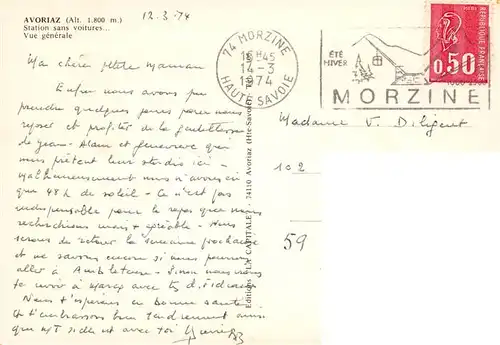 AVORIAZ (Alt. 1.800 m.)
Station sans voitures...
Vue générale
12.3.74
Ma chère petite Maman
Enfin nous avons pu
prendre quelques jours pour nous
reposer et profiter de la gentillesse
de Jean-Alain et Geneviève qui
nous prêtent leur studio ici -
Malheureusement nous n'avons eu
que 48 h de soleil - Ce n'est pas
indispensable pour le repos que nous
recherchions mais + agréable - Nous
serons de retour la semaine prochaine
et ne savons encore si nous pourrons
aller à Ambleteuse - Sinon nous
te voir à avec d'
Nous t'espérons en bonne santé
et t'embrassons bien tendrement ainsi
que et avec toi
Editions "LA CAPITALE" - 74110 Avoriaz (Hte-Savoie)
74 MORZINE
16H45
14-3
1974
HAUTE SAVOIE
ÉTÉ
HIVER
MORZINE
REPUBLIQUE FRANÇAISE
0,50
Madame V. Diligent
102
59